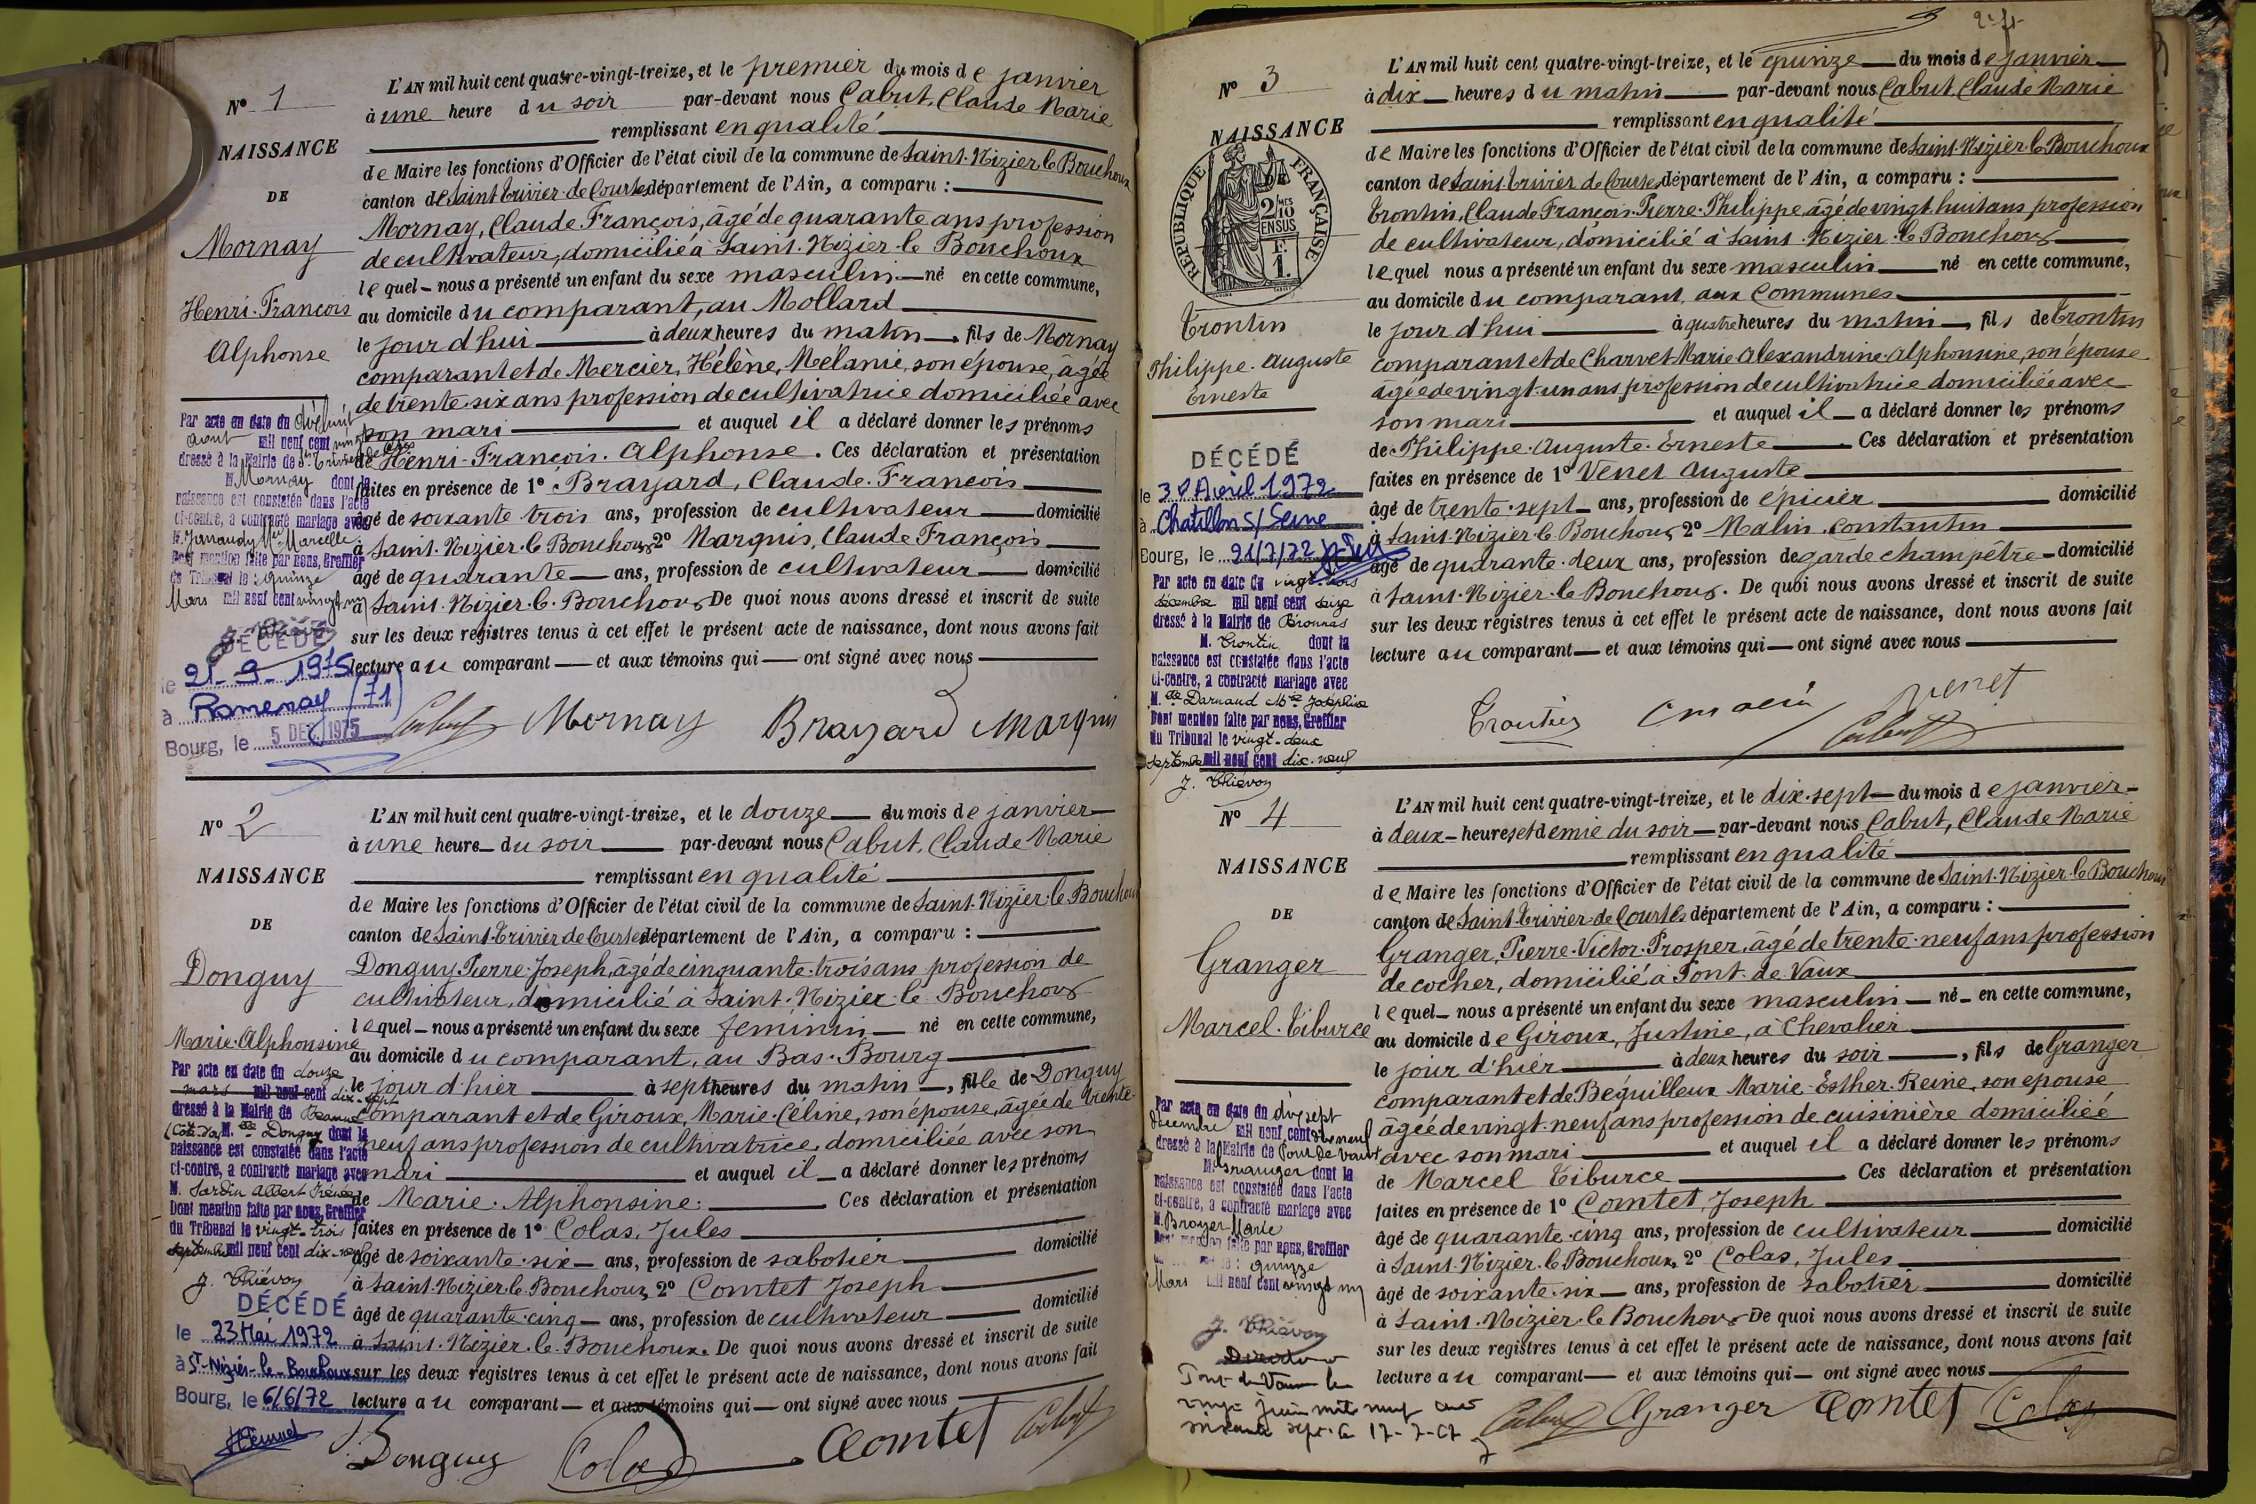 Nº 1
NAISSANCE
DE
Mornay
Henri-François
Alphonse
L'AN mil huit cent quatre-vingt-treize, et le premier du mois de janvier
à une heure du soir par-devant nous Cabut, Claude Marie
remplissant en qualité
de Maire les fonctions d'Officier de l'état civil de la commune de Saint-Nizier-le-Bouchoux
canton de Saint-Trivier-de-Courtes département de l'Ain, a comparu :
Mornay, Claude-François, âgé de quarante ans profession
de cultivateur, domicilié à Saint-Nizier-le-Bouchoux
lequel nous a présenté un enfant du sexe masculin né en cette commune,
au domicile du comparant, au Mollard
le jour d'hui à deux heures du matin, fils de Mornay
comparant et de Mercier, Hélène, Mélanie, son épouse, âgée
de trente-six ans profession de cultivatrice domiciliée avec
son mari et auquel il a déclaré donner les prénoms
de Henri-François-Alphonse. Ces déclaration et présentation
faites en présence de 1º Brayard, Claude-François
âgé de soixante trois ans, profession de cultivateur domicilié
à Saint-Nizier-le-Bouchoux 2º Marquis, Claude François
âgé de quarante ans, profession de cultivateur domicilié
à Saint-Nizier-le-Bouchoux De quoi nous avons dressé et inscrit de suite
sur les deux registres tenus à cet effet le présent acte de naissance, dont nous avons fait
lecture au comparant et aux témoins qui ont signé avec nous
Cabut Mornay Brayard Marquis
Par acte en date du dix huit
août mil neuf cent vingt
dressé à la Mairie de St Trivier de Ctes
M. Mornay dont la
naissance est constatée dans l'acte
ci-contre, a contracté mariage avec
Marcelle
Dont mention faite par nous, Greffier
du Tribunal le quinze
Mars mil neuf cent vingt un
J. Thiévon
DÉCÉDÉ
le 21-9-1975
à Romenay (71)
Bourg, le 5 DEC 1975
Nº 2
NAISSANCE
DE
Donguy
Marie-Alphonsine
L'AN mil huit cent quatre-vingt-treize, et le douze du mois de janvier
à une heure du soir par-devant nous Cabut, Claude Marie
remplissant en qualité
de Maire les fonctions d'Officier de l'état civil de la commune de Saint-Nizier-le-Bouchoux
canton de Saint-Trivier de Courtes département de l'Ain, a comparu :
Donguy Pierre-Joseph, âgé de cinquante-trois ans profession de
cultivateur, domicilié à Saint-Nizier-le-Bouchoux
lequel nous a présenté un enfant du sexe féminin né en cette commune,
au domicile du comparant, au Bas-Bourg
le jour d'hier à sept heures du matin, fille de Donguy
comparant et de Giroux, Marie-Céline, son épouse, âgée de trente-
neuf ans profession de cultivatrice, domiciliée avec son
mari et auquel il a déclaré donner les prénoms
de Marie-Alphonsine. Ces déclaration et présentation
faites en présence de 1º Colas, Jules
âgé de soixante-six ans, profession de sabotier domicilié
à Saint-Nizier-le-Bouchoux 2º Comtet Joseph
âgé de quarante-cinq ans, profession de cultivateur domicilié
à Saint-Nizier-le-Bouchoux. De quoi nous avons dressé et inscrit de suite
sur les deux registres tenus à cet effet le présent acte de naissance, dont nous avons fait
lecture au comparant et aux témoins qui ont signé avec nous
Donguy Colas Comtet Cabut
Par acte en date du douze
mars mil neuf cent dix-sept
dressé à la Mairie de Beaune
(Côte d'Or) Mlle Donguy dont la
naissance est constatée dans l'acte
ci-contre, a contracté mariage avec
M. Jardin Albert
Dont mention faite par nous, Greffier
du Tribunal le vingt-trois
septembre mil neuf cent dix-neuf
J. Thiévon
DÉCÉDÉ
le 23 Mai 1972
à St-Nizier-le-Bouchoux
Bourg, le 6/6/72
Nº 3
NAISSANCE
RÉPUBLIQUE FRANÇAISE
2/10 EN SUS
1 F.
Trontin
Philippe-Auguste
Erneste
L'AN mil huit cent quatre-vingt-treize, et le quinze du mois de janvier
à dix heures du matin par-devant nous Cabut, Claude Marie
remplissant en qualité
de Maire les fonctions d'Officier de l'état civil de la commune de Saint-Nizier-le-Bouchoux
canton de Saint-Trivier de Courtes département de l'Ain, a comparu :
Trontin, Claude François-Pierre-Philippe, âgé de vingt huit ans profession
de cultivateur, domicilié à Saint-Nizier-le-Bouchoux
lequel nous a présenté un enfant du sexe masculin né en cette commune,
au domicile du comparant, aux Communes
le jour d'hui à quatre heures du matin, fils de Trontin
comparant et de Charvet Marie Alexandrine-Alphonsine, son épouse
âgée de vingt-un ans profession de cultivatrice domiciliée avec
son mari et auquel il a déclaré donner les prénoms
de Philippe-Auguste-Erneste Ces déclaration et présentation
faites en présence de 1º Venet Auguste
âgé de trente-sept ans, profession de épicier domicilié
à Saint-Nizier-le-Bouchoux 2º Malin Constantin
âgé de quarante-deux ans, profession de garde champêtre domicilié
à Saint-Nizier-le-Bouchoux. De quoi nous avons dressé et inscrit de suite
sur les deux registres tenus à cet effet le présent acte de naissance, dont nous avons fait
lecture au comparant et aux témoins qui ont signé avec nous
Trontin Malin Venet
Cabut
DÉCÉDÉ
le 30 Avril 1972
à Chatillon s/ Seine
Bourg, le 21/7/72
Par acte en date du vingt-trois
décembre mil neuf cent seize
dressé à la Mairie de Bronnas
M. Trontin dont la
naissance est constatée dans l'acte
ci-contre, a contracté mariage avec
Mlle Darnaud Mie Joséphine
Dont mention faite par nous, Greffier
du Tribunal le vingt-deux
septembre mil neuf cent dix-neuf
J. Thiévon
Nº 4
NAISSANCE
DE
Granger
Marcel-Tiburce
L'AN mil huit cent quatre-vingt-treize, et le dix-sept du mois de janvier
à deux heures et demie du soir par-devant nous Cabut, Claude Marie
remplissant en qualité
de Maire les fonctions d'Officier de l'état civil de la commune de Saint-Nizier-le-Bouchoux
canton de Saint-Trivier-de-Courtes département de l'Ain, a comparu :
Granger, Pierre-Victor-Prosper, âgé de trente-neuf ans profession
de cocher, domicilié à Pont-de-Vaux
lequel nous a présenté un enfant du sexe masculin né en cette commune,
au domicile de Giroux, Justine, à Chevalier
le jour d'hier à deux heures du soir, fils de Granger
comparant et de Béguilleux Marie-Esther-Reine, son épouse
âgée de vingt-neuf ans profession de cuisinière domiciliée
avec son mari et auquel il a déclaré donner les prénoms
de Marcel Tiburce Ces déclaration et présentation
faites en présence de 1º Comtet, Joseph
âgé de quarante-cinq ans, profession de cultivateur domicilié
à Saint-Nizier-le-Bouchoux, 2º Colas, Jules
âgé de soixante-six ans, profession de sabotier domicilié
à Saint-Nizier-le-Bouchoux De quoi nous avons dressé et inscrit de suite
sur les deux registres tenus à cet effet le présent acte de naissance, dont nous avons fait
lecture au comparant et aux témoins qui ont signé avec nous
Cabut Granger Comtet Colas
Par acte en date du dix sept
décembre mil neuf cent dix neuf
dressé à la Mairie de Pont de Vaux
M. Granger dont la
naissance est constatée dans l'acte
ci-contre, a contracté mariage avec
Broyer Marie
Dont mention faite par nous, Greffier
quinze
Mars mil neuf cent vingt un
J. Thiévon
Pont-de-Vaux le
juin mil neuf cent
soixante sept. le 17-7-67